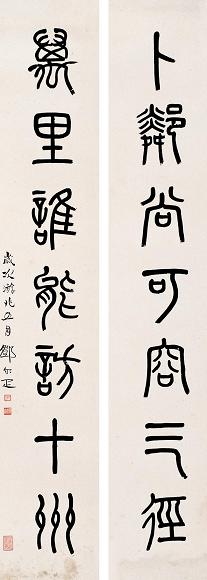 卜鄰尚可容三徑
萬里誰能訪十洲
歲次游兆五月鄧尔疋